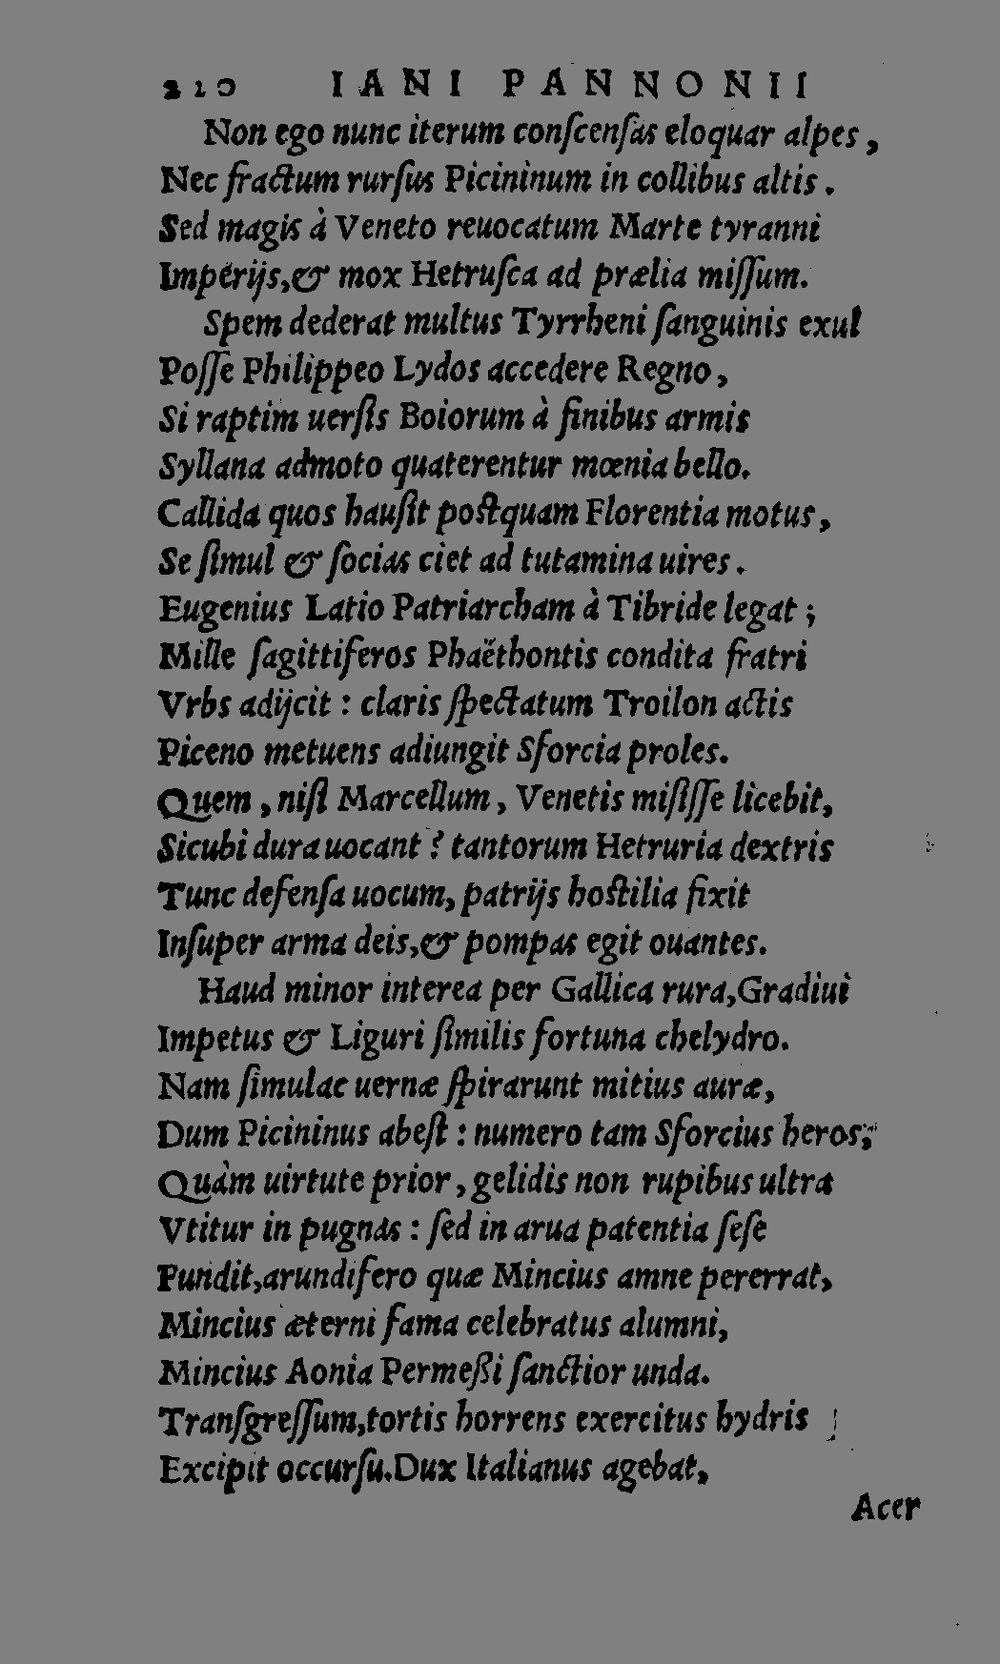 210 IANI PANNONII
Non ego nunc iterum conſcenſas eloquar alpes,
Nec fractum rurſus Picininum in collibus altis.
Sed magis à Veneto reuocatum Marte tyranni
Imperijs,& mox Hetruſca ad prælia miſſum.
Spem dederat multus Tyrrheni ſanguinis exul
Poſſe Philippeo Lydos accedere Regno,
Si raptim uerſis Boiorum à finibus armis
Syllana admoto quaterentur mœnia bello.
Callida quos hauſit poſtquam Florentia motus,
Se ſimul & ſocias ciet ad tutamina uires.
Eugenius Latio Patriarcham à Tibride legat;
Mille ſagittiferos Phaëthontis condita fratri
Vrbs adijcit : claris ſpectatum Troilon actis
Piceno metuens adiungit Sforcia proles.
Quem, niſi Marcellum, Venetis miſiſſe licebit,
Sicubi dura uocant? tantorum Hetruria dextris
Tunc defenſa uocum, patrijs hoſtilia fixit
Inſuper arma deis,& pompas egit ouantes.
Haud minor interea per Gallica rura,Gradiui
Impetus & Liguri ſimilis fortuna chelydro.
Nam ſimulac uernæ ſpirarunt mitius auræ,
Dum Picininus abeſt : numero tam Sforcius heros,
Quàm uirtute prior, gelidis non rupibus ultra
Vtitur in pugnas : ſed in arua patentia ſeſe
Fundit,arundifero quæ Mincius amne pererrat,
Mincius æterni fama celebratus alumni,
Mincius Aonia Permeßi ſanctior unda.
Tranſgreſſum,tortis horrens exercitus hydris
Excipit occurſu.Dux Italianus agebat,
Acer